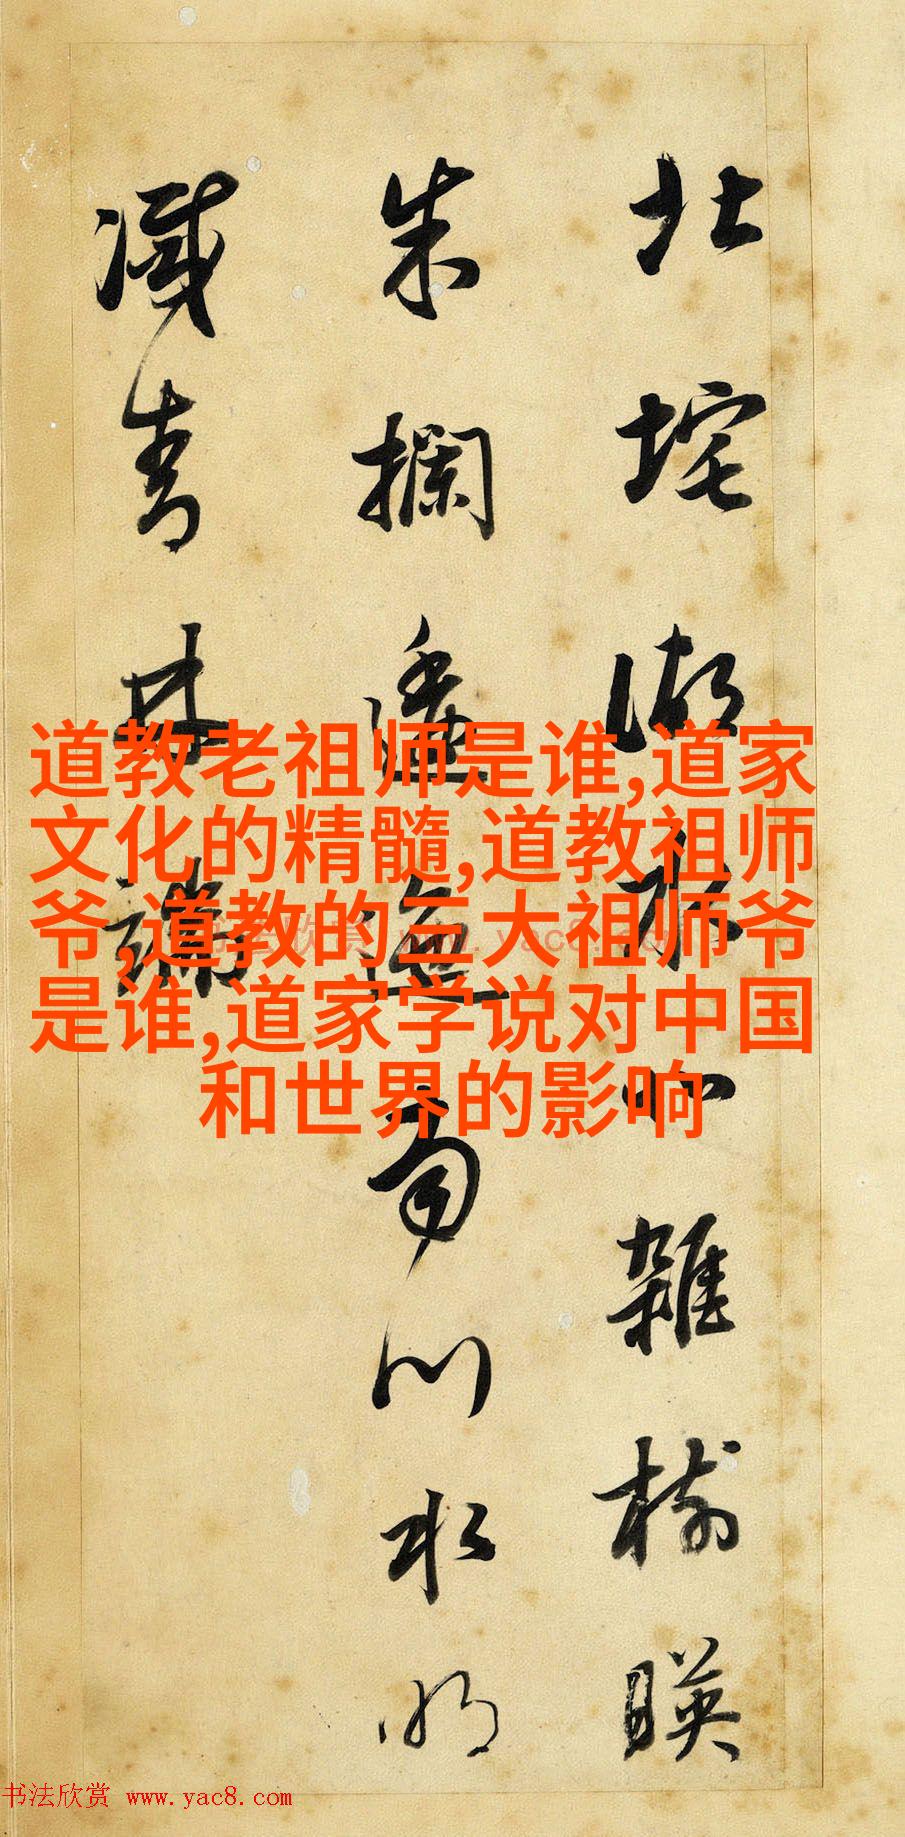 北垞湖水北雜樹暎
朱攔逶迤南川水明
滅青林端
道教老祖师是谁,道家
文化的精髓,道教祖师
爷,道教的三大祖师爷
是谁,道家学说对中国
和世界的影响
书法欣赏 www.yac8.com